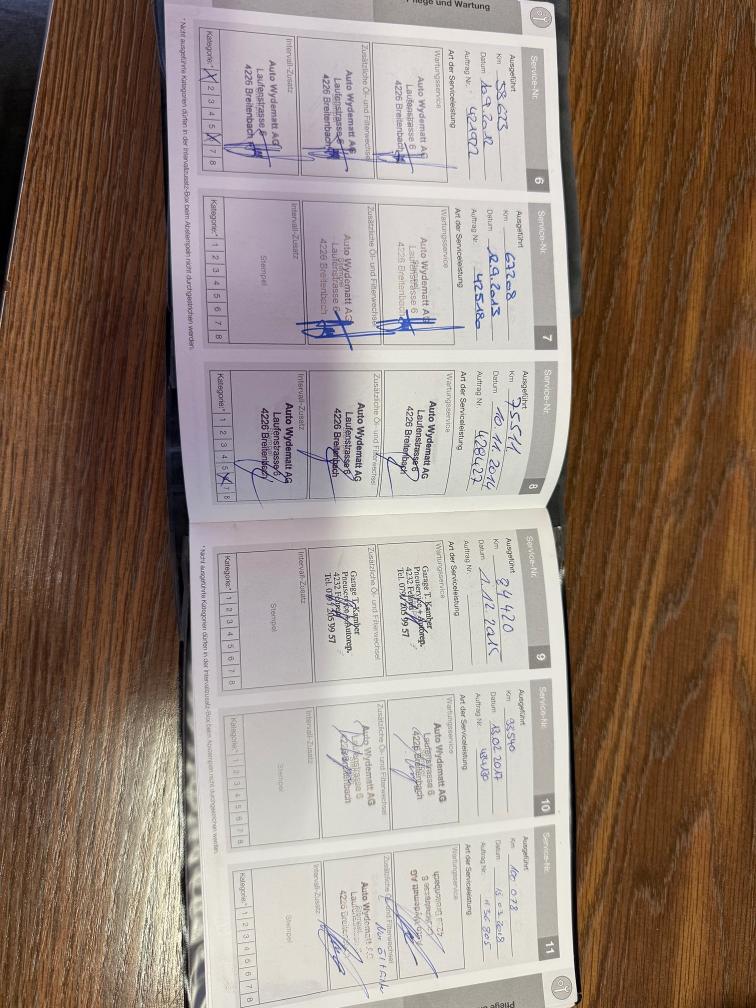 Pflege und Wartung
Service-Nr. 6
Ausgeführt
Km 58 673
Datum 10.9.2012
Auftrag Nr. 421977
Art der Serviceleistung
Wartungsservice
Auto Wydematt AG
Laufenstrasse 6
4226 Breitenbach
Zusätzliche Öl- und Filterwechsel
Auto Wydematt AG
Laufenstrasse 6
4226 Breitenbach
Intervall-Zusatz
Auto Wydematt AG
Laufenstrasse 6
4226 Breitenbach
Kategorie:* X 2 3 4 5 X 7 8
Service-Nr. 7
Ausgeführt
Km 67208
Datum 12.9.2013
Auftrag Nr. 425180
Art der Serviceleistung
Wartungsservice
Auto Wydematt AG
Laufenstrasse 6
4226 Breitenbach
Zusätzliche Öl- und Filterwechsel
Auto Wydematt AG
Laufenstrasse 6
4226 Breitenbach
Intervall-Zusatz
Stempel
Kategorie:* 1 2 3 4 5 6 7 8
Service-Nr. 8
Ausgeführt
Km 75511
Datum 10.11.2014
Auftrag Nr. 428427
Art der Serviceleistung
Wartungsservice
Auto Wydematt AG
Laufenstrasse 6
4226 Breitenbach
Zusätzliche Öl- und Filterwechsel
Auto Wydematt AG
Laufenstrasse 6
4226 Breitenbach
Intervall-Zusatz
Auto Wydematt AG
Laufenstrasse 6
4226 Breitenbach
Kategorie:* 1 2 3 4 5 X 7 8
* Nicht ausgeführte Kategorien dürfen in der Intervallzusatz-Box beim Abstempeln nicht durchgestrichen werden.
Service-Nr. 9
Ausgeführt
Km 84420
Datum 1.12.2015
Auftrag Nr.
Art der Serviceleistung
Wartungsservice
Garage T. Kamber
Pneuservice + Autorep.
4232 Fehren
Tel. 079 205 99 57
Zusätzliche Öl- und Filterwechsel
Garage T. Kamber
Pneuservice + Autorep.
4232 Fehren
Tel. 079 205 99 57
Intervall-Zusatz
Stempel
Kategorie:* 1 2 3 4 5 6 7 8
Service-Nr. 10
Ausgeführt
Km 93540
Datum 13.02.2017
Auftrag Nr.
Art der Serviceleistung
Wartungsservice
Auto Wydematt AG
Laufenstrasse 6
4226 Breitenbach
Zusätzliche Öl- und Filterwechsel
Auto Wydematt AG
Laufenstrasse 6
4226 Breitenbach
Intervall-Zusatz
Stempel
Kategorie:* 1 2 3 4 5 6 7 8
Service-Nr. 11
Ausgeführt
Km 100 078
Datum 15.03.2018
Auftrag Nr. 436805
Art der Serviceleistung
Wartungsservice
Auto Wydematt AG
Laufenstrasse 6
4226 Breitenbach
Zusätzliche Öl- und Filterwechsel
Auto Wydematt AG
Intervall-Zusatz
Stempel
Kategorie:* 1 2 3 4 5 6 7 8
* Nicht ausgeführte Kategorien dürfen in der Intervallzusatz-Box beim Abstempeln nicht durchgestrichen werden.